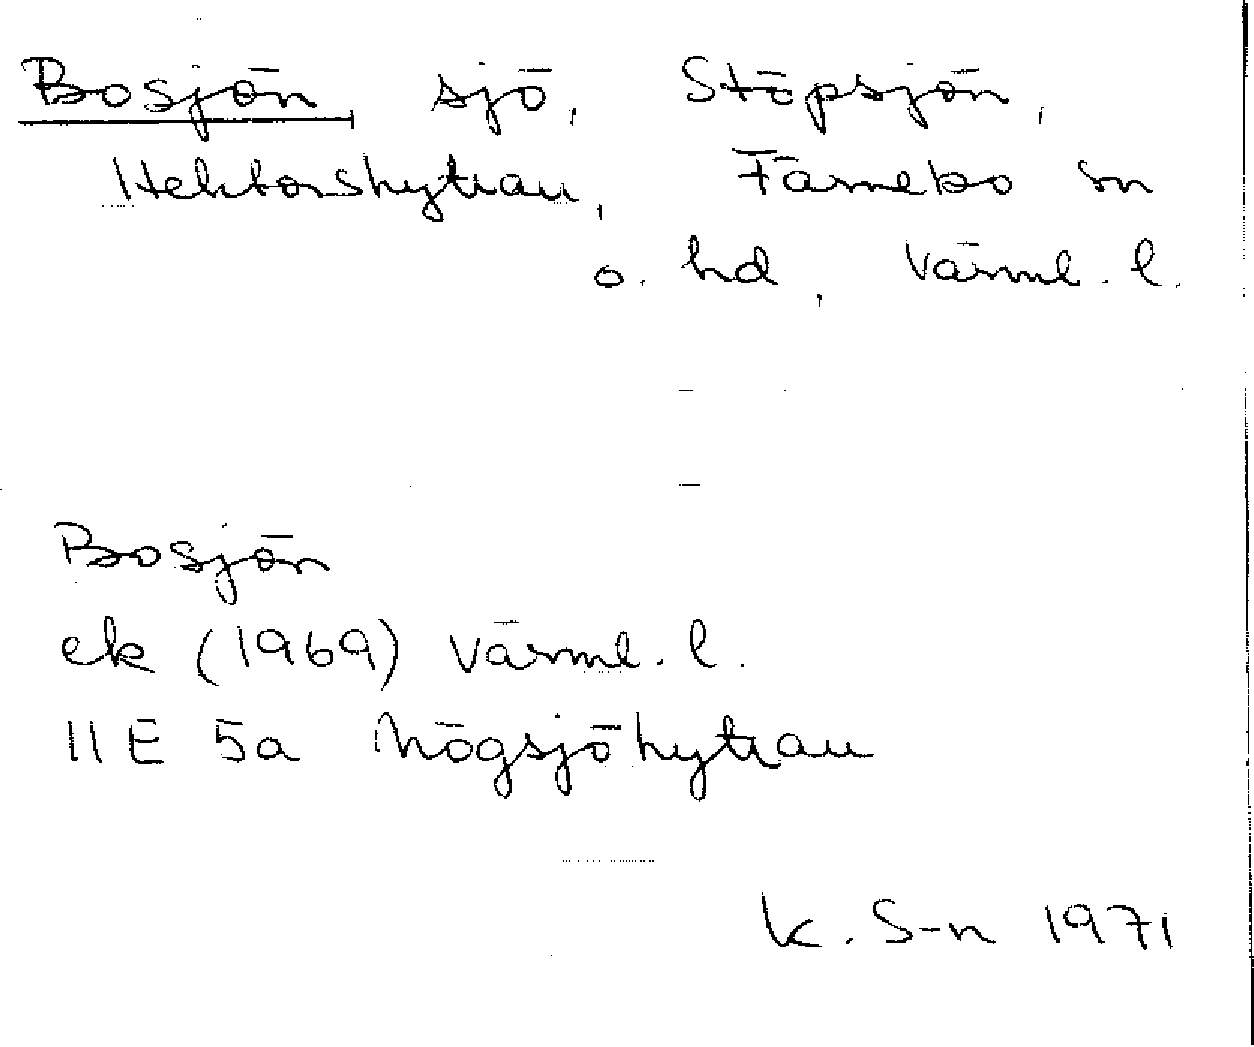 Bosjön, sjö, Stöpsjön,
Hektorshyttan, Färnebo sn
o. hd, Värml. l.
Bosjön
ek (1969) Värml. l.
11E 5a Högsjöhyttan
K. S-n 1971